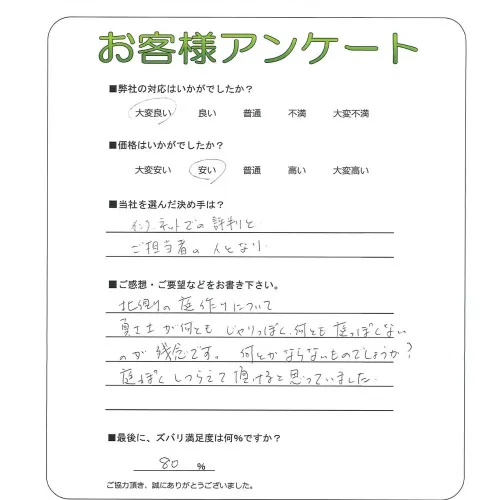 お客様アンケート
■弊社の対応はいかがでしたか？
大変良い 良い 普通 不満 大変不満
■価格はいかがでしたか？
大変安い 安い 普通 高い 大変高い
■当社を選んだ決め手は？
インターネットでの評判と
ご担当者の人となり
■ご感想・ご要望などをお書き下さい。
北側の庭作りについて
真砂土が何とも じゃりっぽく、何とも庭っぽくない
のが残念です。 何とかならないものでしょうか？
庭ぽくしつらえて頂けると思っていました。
■最後に、ズバリ満足度は何％ですか？
80 ％
ご協力頂き、誠にありがとうございました。